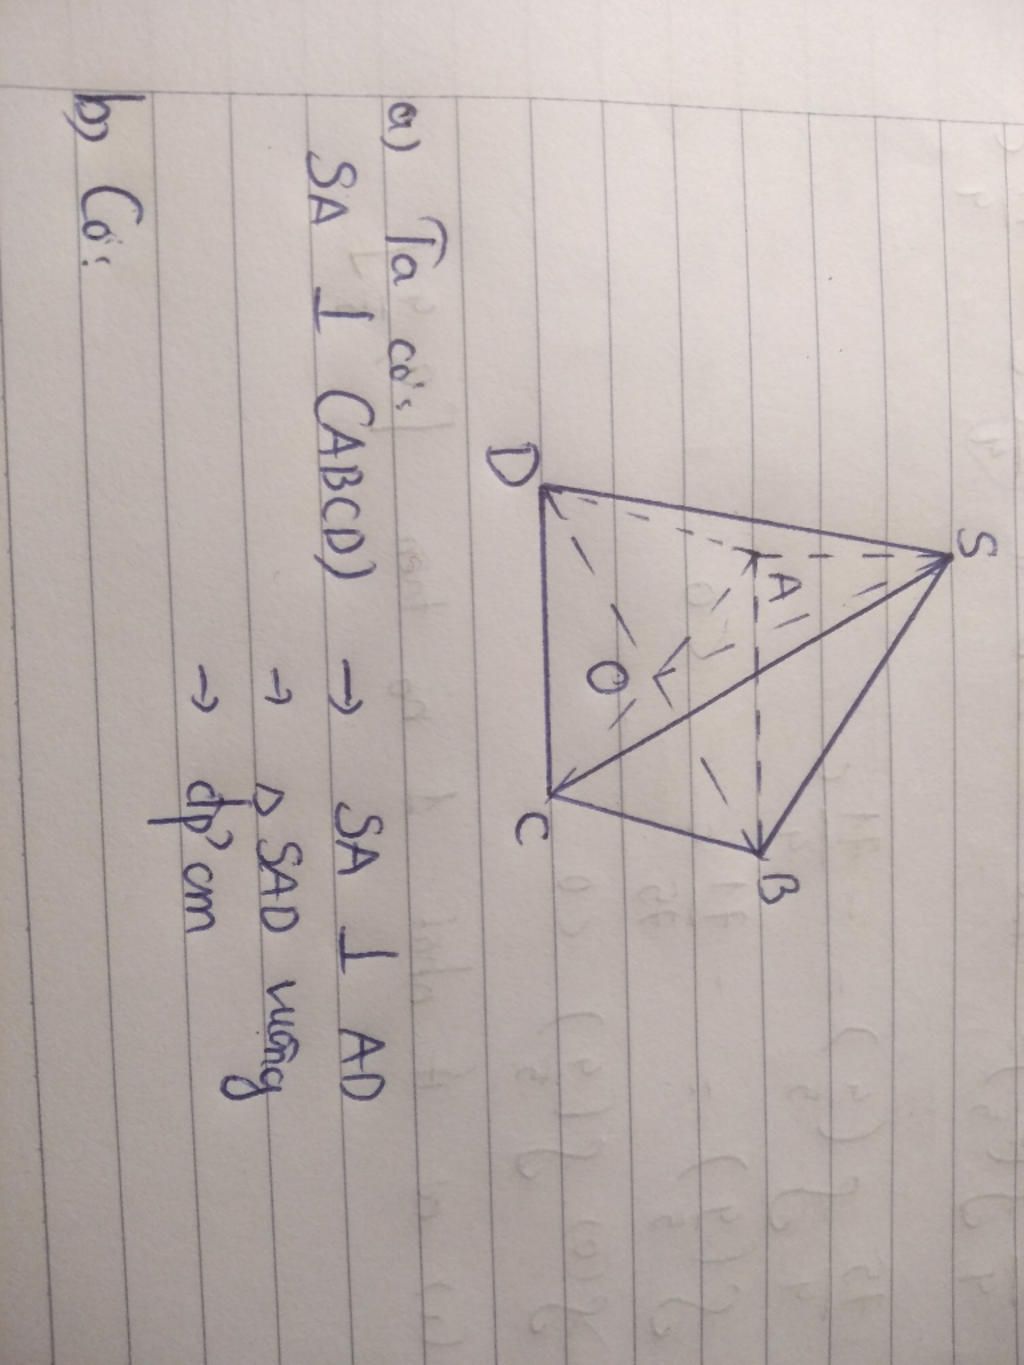 S
A
B
D
O
C
a) Ta có:
SA ⊥ (ABCD) → SA ⊥ AD
→ Δ SAD vuông
→ đpcm
b) Có: